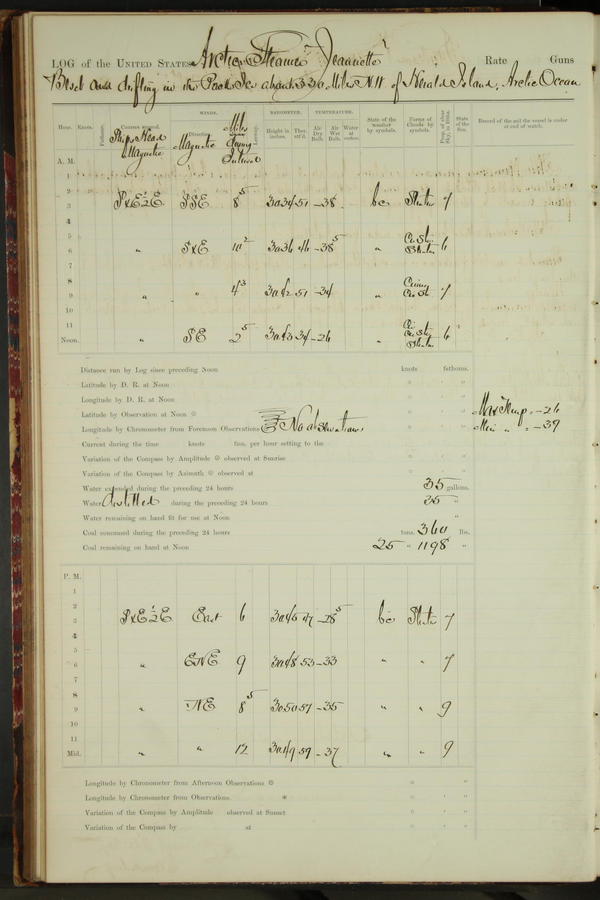 LOG of the UNITED STATES Arctic Steamer "Jeannette" Rate Guns
Beset and drifting in the Pack Ice about 330 Miles N.W. of Herald Island, Arctic Ocean
Hour. Knots. Fathoms. Courses steered. WINDS. Direction. Leeway. BAROMETER. Height in inches. Ther. att'd. TEMPERATURE. Air Dry Bulb. Air Wet Bulb. Water at surface. State of the weather by symbols. Forms of Clouds by symbols. Prop. of clear sky, in tenths. State of the Sea. Record of the sail the vessel is under at end of watch.
Ships Head Magnetic Magnetic Miles
A. M.
1
2
3 SSE 8 5 30 34 51 -38 bc Stratus 7
4
5
6 " SxE 10 2 30 36 46 -38 5 " 6
7
8
9 " " 4 3 30 42 51 -34 " 7
10
11
Noon. " SE 2 5 30 43 34 -26 " 6
Distance run by Log since preceding Noon knots fathoms.
Latitude by D. R. at Noon ° ' "
Longitude by D. R. at Noon ° ' "
Latitude by Observation at Noon ° ' " Max Temp. = -26
Longitude by Chronometer from Forenoon Observations No observations ° ' " Min " = -39
Current during the time knots fms. per hour setting to the
Variation of the Compass by Amplitude observed at Sunrise ° ' "
Variation of the Compass by Azimuth observed at ° ' "
Water expended during the preceding 24 hours 35 gallons.
Water distilled during the preceding 24 hours 35 "
Water remaining on hand fit for use at Noon "
Coal consumed during the preceding 24 hours tons. 360 lbs.
Coal remaining on hand at Noon 25 " 1198 "
P. M.
1
2
3 East 6 30 45 47 -28 5 bc Stratus 7
4
5
6 " ENE 9 30 48 53 -33 " " 7
7
8
9 " NE 8 5 30 50 57 -35 " " 9
10
11
Mid. " " 12 30 49 59 -37 " " 9
Longitude by Chronometer from Afternoon Observations ° ' "
Longitude by Chronometer from Observations. ° ' "
Variation of the Compass by Amplitude observed at Sunset ° ' "
Variation of the Compass by at ° ' "